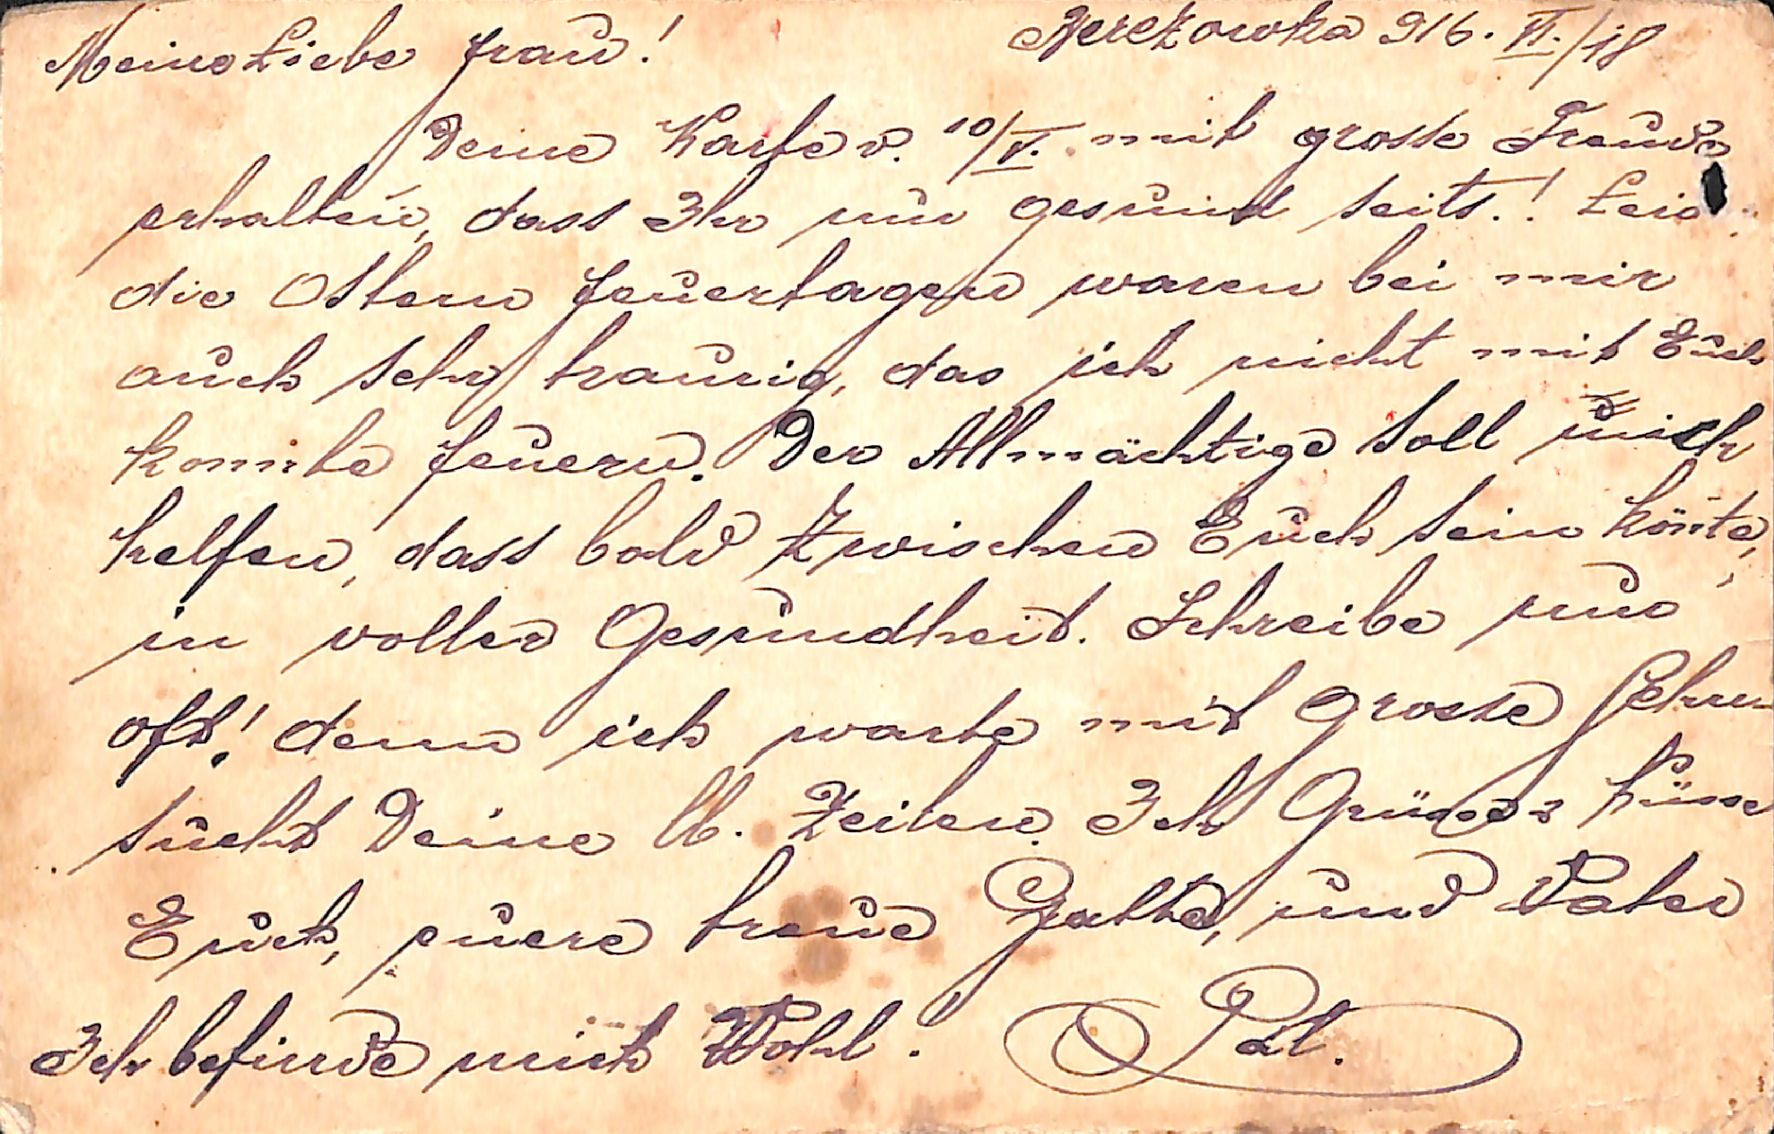 Meine Liebe Frau! Berezowka 916. VI./18
Deine Karte v. 10/V. mit grosse Freude
erhalten, dass Ihr nur gesund seits.! Leid
die Ostern feuertagen waren bei mir
auch sehr traurig, das ich nicht mit Euch
konnte feuern. Der Allmächtige soll mich
helfen, dass bald zwischen Euch sein könte,
in voller Gesundheit. Schreibe nur
oft! denn ich warte mit grosse Sehn-
sucht Deine lb. Zeilen. Ich Grüsse küsse
Euch, euere treue Gatte, und Vater
Ich befinde mich Wohl! Pál.